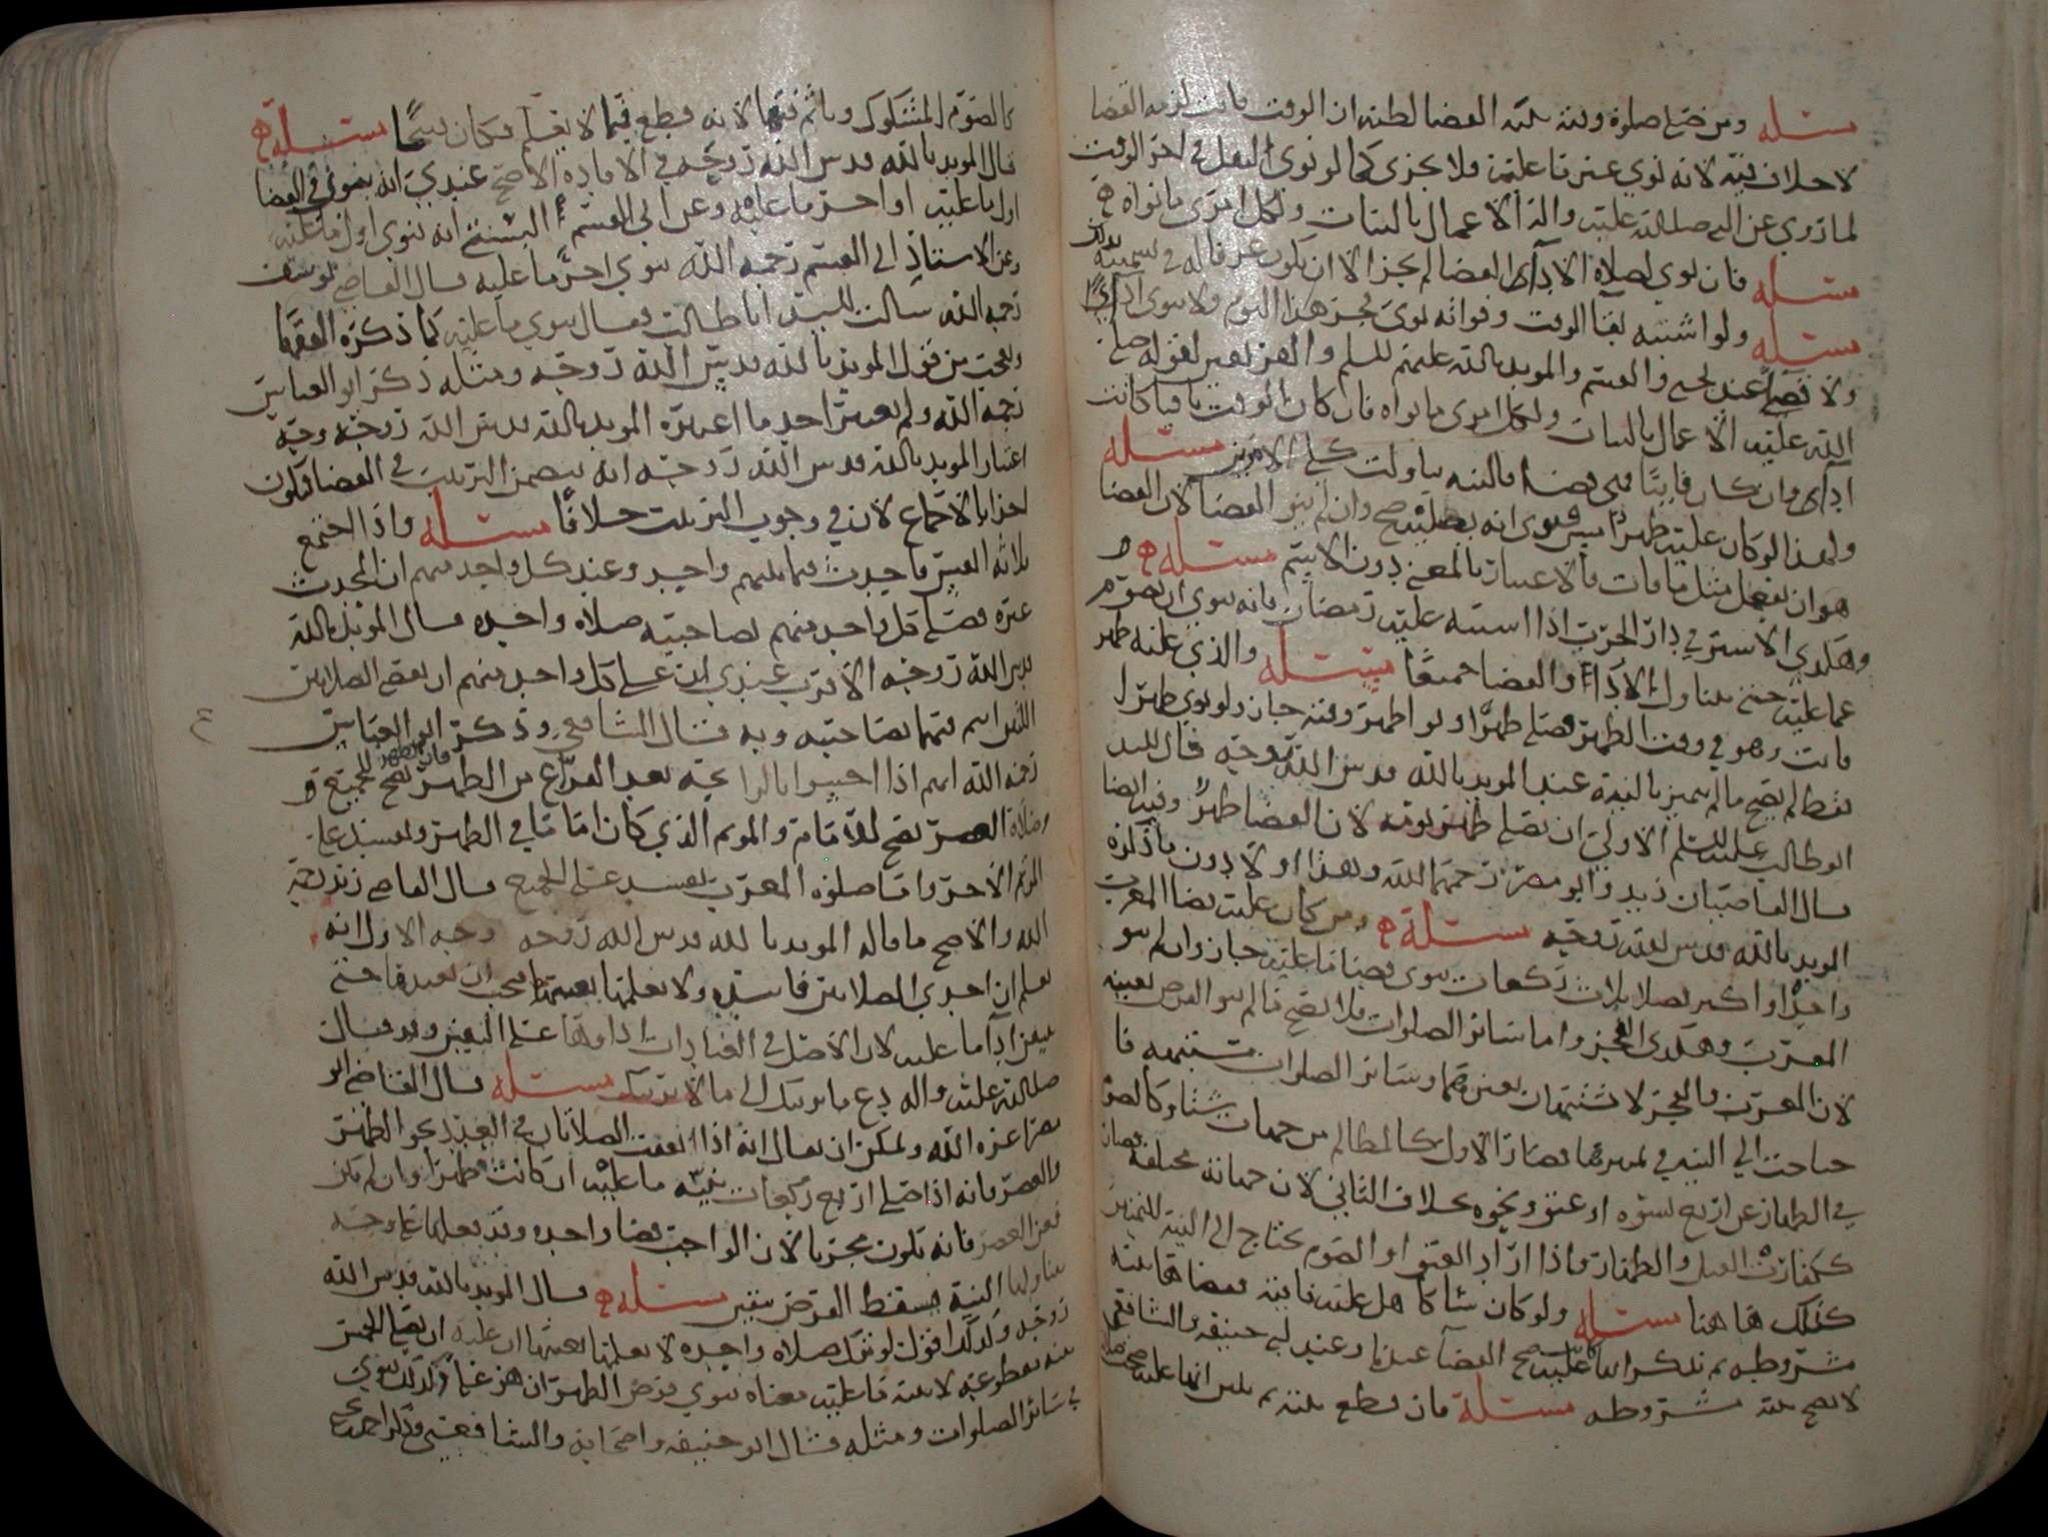 مسئله ومن صلى صلوة وقته بنية القضا لظنه ان الوقت فايت لزمه القضا
لا خلاف فيه لانه نوى غير ما عليه فلا يجزى كما لو نوى النفل في اخر الوقت
لما روي عن النبي صلى الله عليه واله الاعمال بالنيات ولكل امرئ ما نواه
مسئله فان نوى لصلاة الادآء القضا لم يجز الا ان يكون غير قاله في تسميته
مسئله ولو اشتبه بقا الوقت وفواته نوى فجر هذا اليوم ولا ينوي ادآءً
ولا قضآءً عند يحيى والقسم والمويد بالله عليهم السلم والفرض لقوله صلى
الله عليه الاعمال بالنيات ولكل امرئ ما نواه فان كان الوقت باقيا كانت
ادآء وان كان فايتًا فهي قضا فالنيه تناولت كلي الامرين مسئله
ولهذا لو كان عليه ظهر امس فنوى انه يصليه صح وان لم ينو القضا لان القضا
هو ان يفعل مثل ما فات فالاعتبار بالمعنى دون الاسم مسئله
وهكذى الاسير في دار الحرب اذا اشتبه عليه رمضان فانه ينوي ان يصوم
عما عليه حتى يتناول الادآء والقضا جميعًا مسئله والذي عليه ظهر
فايت وهو في وقت الظهر فصلى ظهرًا ونوا ظهر وقته جاز ولو نوى ظهرًا
فقط لم يصح ما لم يميز بالنية عند المويد بالله قدس الله روحه قال السيد
ابو طالب عليه السلم الاولى ان يصلي ظهر يومه لان القضا ظهر وقيد ايضا
قال القاضيان زيد وابو مضر رحمهما الله وهذا اولا دون ما ذكره
المويد بالله قدس الله روحه مسئله ومن كان عليه قضا المغرب
واحدًا او اكثر فصلا ثلاث ركعات ينوى قضا ما عليه جاز وان لم ينو
المغرب وهكذى الفجر واما سائر الصلوات فلا يصح ما لم ينو الفرض بعينه
لان المغرب والفجر لا تشتبهان بغيرهما وسائر الصلوات مشتبهه فا
حتاجت الى النيه في تمييزها فصار الاول كالمظالم من جهات شتا وكالصوم
في الظهار عن اربع نسوه او عتق ونحوه بخلاف الثاني لان جهاته مختلفه فصار
ككفارة القتل والظهار فاذا اراد العتق او الصوم يحتاج الى النية للتمييز
كذلك ها هنا مسئله ولو كان شاكا هل عليه فايته فقضاها بنيه
مشروطه ثم تذكر انها عليه صح القضآ عندنا وعند ابي حنيفه والشافعي
لا تصح بنيه مشروطه مسئله فان قطع بنيته ثم تبين انها عليه صحت صلا
كالصوم المشكوك وياثم فيها لانه قطع فيما لا يعلم فكان قبيحًا مسئله
قال المويد بالله قدس الله روحه في الافاده الاصح عندي انه ينوي في القضا
اول ما عليه او اخر ما عليه وعن ابي القسم البستي انه ينوى اول ما عليه
وعن الاستاذ ابي القسم رحمه الله ينوي اخر ما عليه قال القاضي يوسف
رحمه الله سالت السيد ابا طالب فقال ينوي ما عليه كما ذكره الفقها
وتعجب من قول المويد بالله قدس الله روحه ومثله ذكر ابو العباس
رحمه الله ولم يعتبر احد ما اعتبره المويد بالله قدس الله روحه وجه
اعتبار المويد بالله قدس الله روحه انه يتضمن الترتيب في القضا فيكون
اخذا بالاجماع لان في وجوب الترتيب خلافًا مسئله واذا اجتمع
ثلاثه انفس فاحدث فيما بينهم واحد وعند كل واحد منهم ان المحدث
غيره فصلى كل واحد منهم بصاحبيه صلاه واحده قال المويد بالله
قدس الله روحه الاقرب عندي ان على كل واحد منهم ان يقضي الصلاتين
اللتين ائتم فيهما بصاحبيه وبه قال الشافعي وذكر ابو العباس
رحمه الله انهم اذا احسوا بالرايحه بعد الفراغ من الظهر فان الظهر تصح للجميع و
وصلاة العصر تصح للامام والموتم الذي كان اماما في الظهر وتفسد على
الموتم الاخر واما صلوة المغرب تفسد على الجميع قال القاضي زيد رحمه
الله والاصح ما قاله المويد بالله قدس الله روحه وجه الاول انه
يعلم ان احدى الصلاتين فاسده ولا يعلمها بعينها فيجب ان يعيدها حتى
يتيقن ادآ ما عليه لان الاصل في العبادات اداوها على اليقين وقد قال
صلى الله عليه واله دع ما يريبك الى ما لا يريبك مسئله قال القاضي ابو
مضر اعزه الله ويمكن ان يقال انه اذا اتفقت الصلاتان في العدد نحو الظهر
والعصر فانه اذا صلى اربع ركعات بنيّه ما عليه ان كانت فظهرًا وان لم يكن
فعن العصر فانه يكون مجزيا لان الواجب قضا واحده وقد فعلها على وجه
تناولها النية فيسقط الفرض بيقين مسئله قال المويد بالله قدس الله
روحه وكذلك اقول لو ترك صلاه واحده لا يعلمها بعينها ان عليه ان يصلي الخمس
بنيه مقطوعه لا بنيه ما عليه معناه ينوي فرض الظهر ان هو عما وكذلك ينوي
في سائر الصلوات ومثله قال ابو حنيفه واصحابه والشافعي وذكر احمد بن يحيى